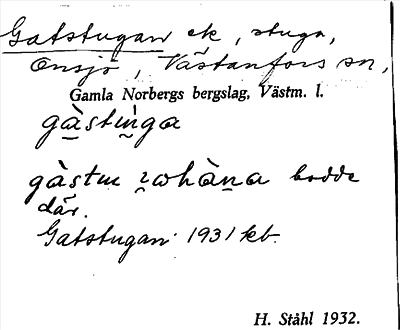 Gatstugan ek, stuga,
Onsjö, Västanfors sn,
Gamla Norbergs bergslag, Västm. l.
gàstinga
gàstin bodde
där.
Gatstugan 1931 kb.
H. Ståhl 1932.